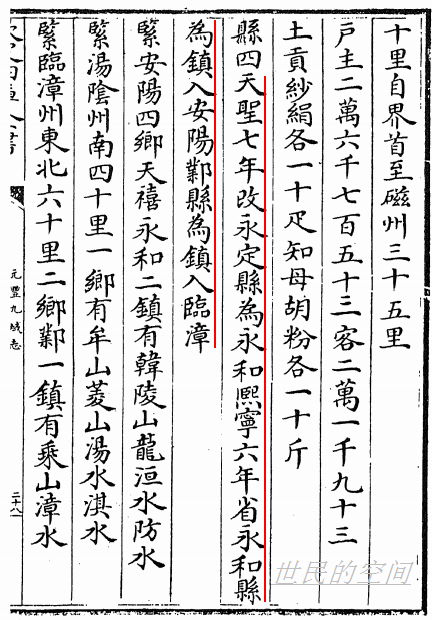 十里自界首至磁州三十五里
戶主二萬六千七百五十三客二萬一千九十三
土貢紗絹各一十疋知母胡粉各一十斤
縣四天聖七年改永定縣為永和熙寧六年省永和縣
為鎮入安陽鄴縣為鎮入臨漳
緊安陽四鄉天禧永和二鎮有韓陵山龍洹水防水
緊湯陰州南四十里一鄉有牟山菱山湯水淇水
緊臨漳州東北六十里二鄉鄴一鎮有乘山漳水
元豐九域志
二十八
世民的空间